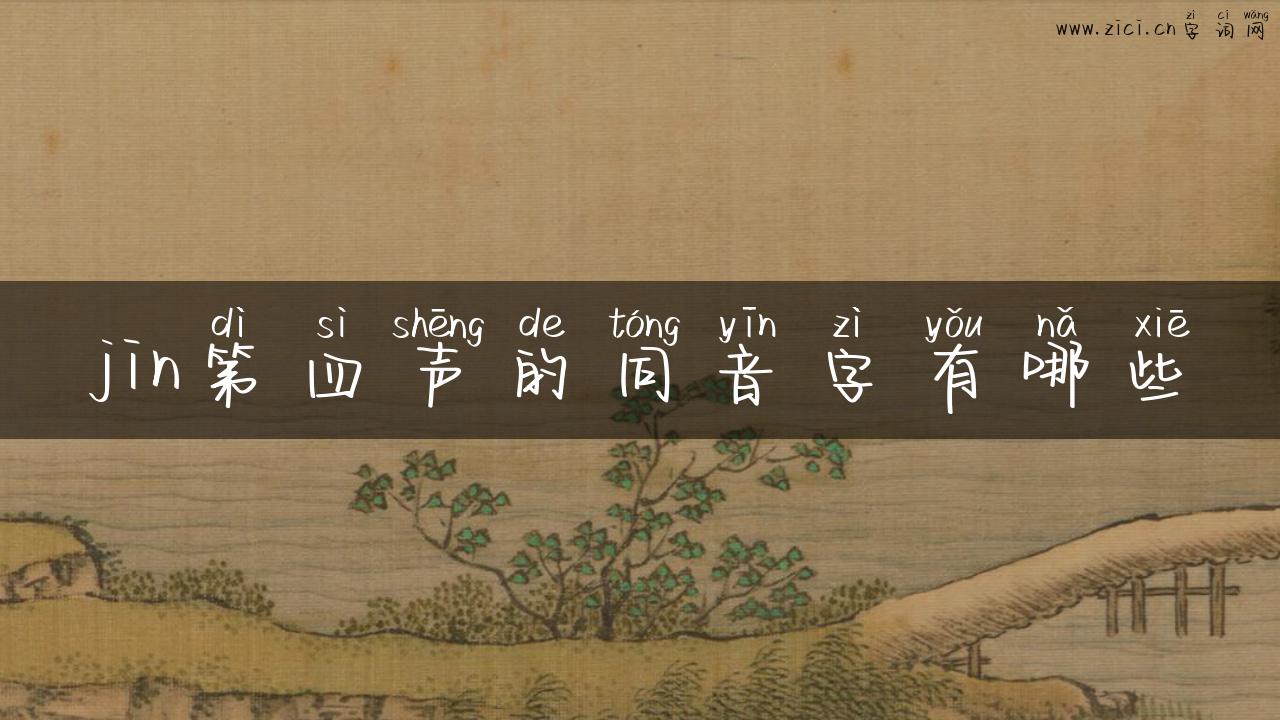 zì cí wǎng
www.zici.cn 字词网
dì sì shēng de tóng yīn zì yǒu nǎ xiē
jin第四声的同音字有哪些